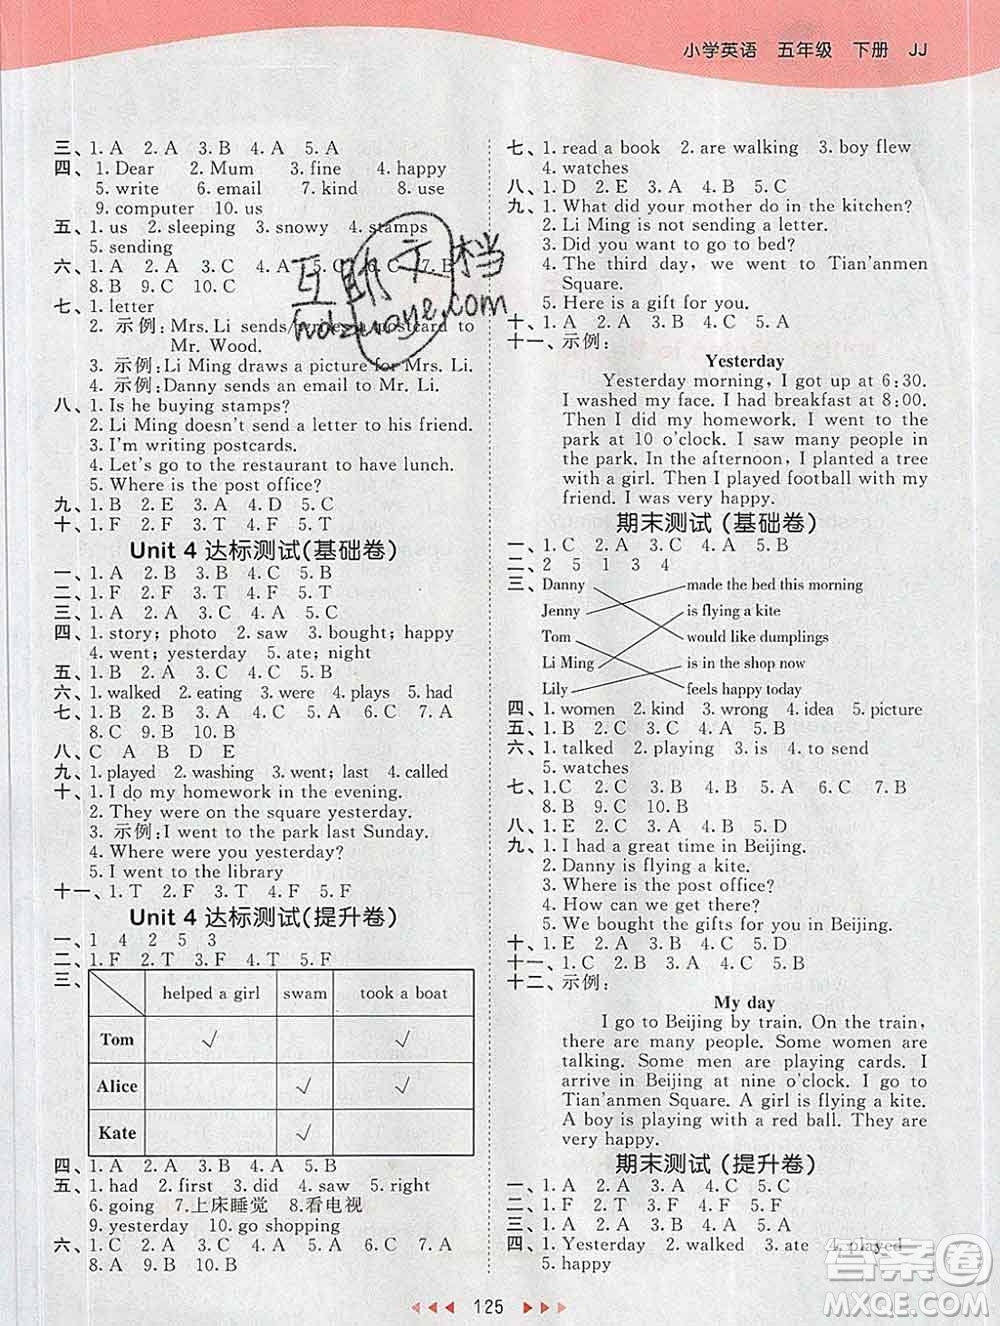 小学英语 五年级 下册 JJ
三、1. A 2. A 3. B 4. A 5. A
四、1. Dear 2. Mum 3. fine 4. happy
5. write 6. email 7. kind 8. use
9. computer 10. us
五、1. us 2. sleeping 3. snowy 4. stamps
5. sending
六、1. A 2. A 3. C 4. A 5. C 6. C 7. B
8. B 9. C 10. C
七、1. letter
2. 示例:Mrs. Li sends/ a postcard to
Mr. Wood.
3. 示例:Li Ming draws a picture for Mrs. Li.
4. 示例:Danny sends an email to Mr. Li.
八、1. Is he buying stamps?
2. Li Ming doesn't send a letter to his friend.
3. I'm writing postcards.
4. Let's go to the restaurant to have lunch.
5. Where is the post office?
九、1. B 2. E 3. A 4. D 5. C
十、1. F 2. F 3. T 4. F 5. T
Unit 4 达标测试(基础卷)
一、1. A 2. B 3. A 4. C 5. B
二、1. F 2. F 3. T 4. F 5. T
三、1. C 2. A 3. C 4. A 5. C
四、1. story; photo 2. saw 3. bought; happy
4. went; yesterday 5. ate; night
五、1. B 2. A 3. C 4. C 5. B
六、1. walked 2. eating 3. were 4. plays 5. had
七、1. B 2. A 3. B 4. C 5. B 6. C 7. A
8. C 9. B 10. B
八、C A B D E
九、1. played 2. washing 3. went; last 4. called
十、1. I do my homework in the evening.
2. They were on the square yesterday.
3. 示例:I went to the park last Sunday.
4. Where were you yesterday?
5. I went to the library
十一、1. T 2. F 3. T 4. F 5. F
Unit 4 达标测试(提升卷)
一、1 4 2 5 3
二、1. F 2. T 3. F 4. T 5. F
三、
helped a girl swam took a boat
Tom ✓ ✓
Alice ✓ ✓
Kate ✓
四、1. A 2. A 3. B 4. C 5. B
五、1. had 2. first 3. did 4. saw 5. right
6. going 7. 上床睡觉 8. 看电视
9. yesterday 10. go shopping
六、1. C 2. A 3. B 4. C 5. B 6. C 7. B
8. A 9. A 10. B
七、1. read a book 2. are walking 3. boy flew
4. watches
八、1. D 2. E 3. A 4. B 5. C
九、1. What did your mother do in the kitchen?
2. Li Ming is not sending a letter.
3. Did you want to go to bed?
4. The third day, we went to Tian'anmen
Square.
5. Here is a gift for you.
十、1. C 2. A 3. A 4. B 5. A
十一、示例:
Yesterday
Yesterday morning, I got up at 6:30.
I washed my face. I had breakfast at 8:00.
Then I did my homework. I went to the
park at 10 o'clock. I saw many people in
the park. In the afternoon, I planted a tree
with a girl. Then I played football with my
friend. I was very happy.
期末测试(基础卷)
一、1. C 2. A 3. A 4. C 5. B
二、2 5 1 3 4
三、Danny made the bed this morning
Jenny is flying a kite
Tom would like dumplings
Li Ming is in the shop now
Lily feels happy today
四、1. women 2. kind 3. wrong 4. idea 5. picture
五、1. B 2. C 3. C 4. A 5. C
六、1. talked 2. playing 3. is 4. to send
5. watches
七、1. C 2. C 3. A 4. B 5. A 6. C 7. B
8. B 9. C 10. B
八、1. E 2. C 3. B 4. A 5. D
九、1. I had a great time in Beijing.
2. Danny is flying a kite.
3. Where is the post office?
4. How can we get there?
5. We bought the gifts for you in Beijing.
十、1. E 2. A 3. D 4. C 5. B
十一、1. C 2. A 3. B 4. C 5. A
十二、示例:
My day
I go to Beijing by train. On the train,
there are many people. Some women are
talking. Some men are playing cards. I
arrive in Beijing at nine o'clock. I go to
Tian'anmen Square. A girl is flying a kite.
A boy is playing with a red ball. They are
very happy.
期末测试(提升卷)
一、1. A 2. A 3. B 4. A 5. C
二、1. F 2. T 3. F 4. T 5. F
三、1. A 2. A 3. A 4. B 5. B
四、1. Yesterday 2. walked 3. ate 4. played
5. happy
125
互助文档
hdzuoye.com
答案圈
MXQE.COM